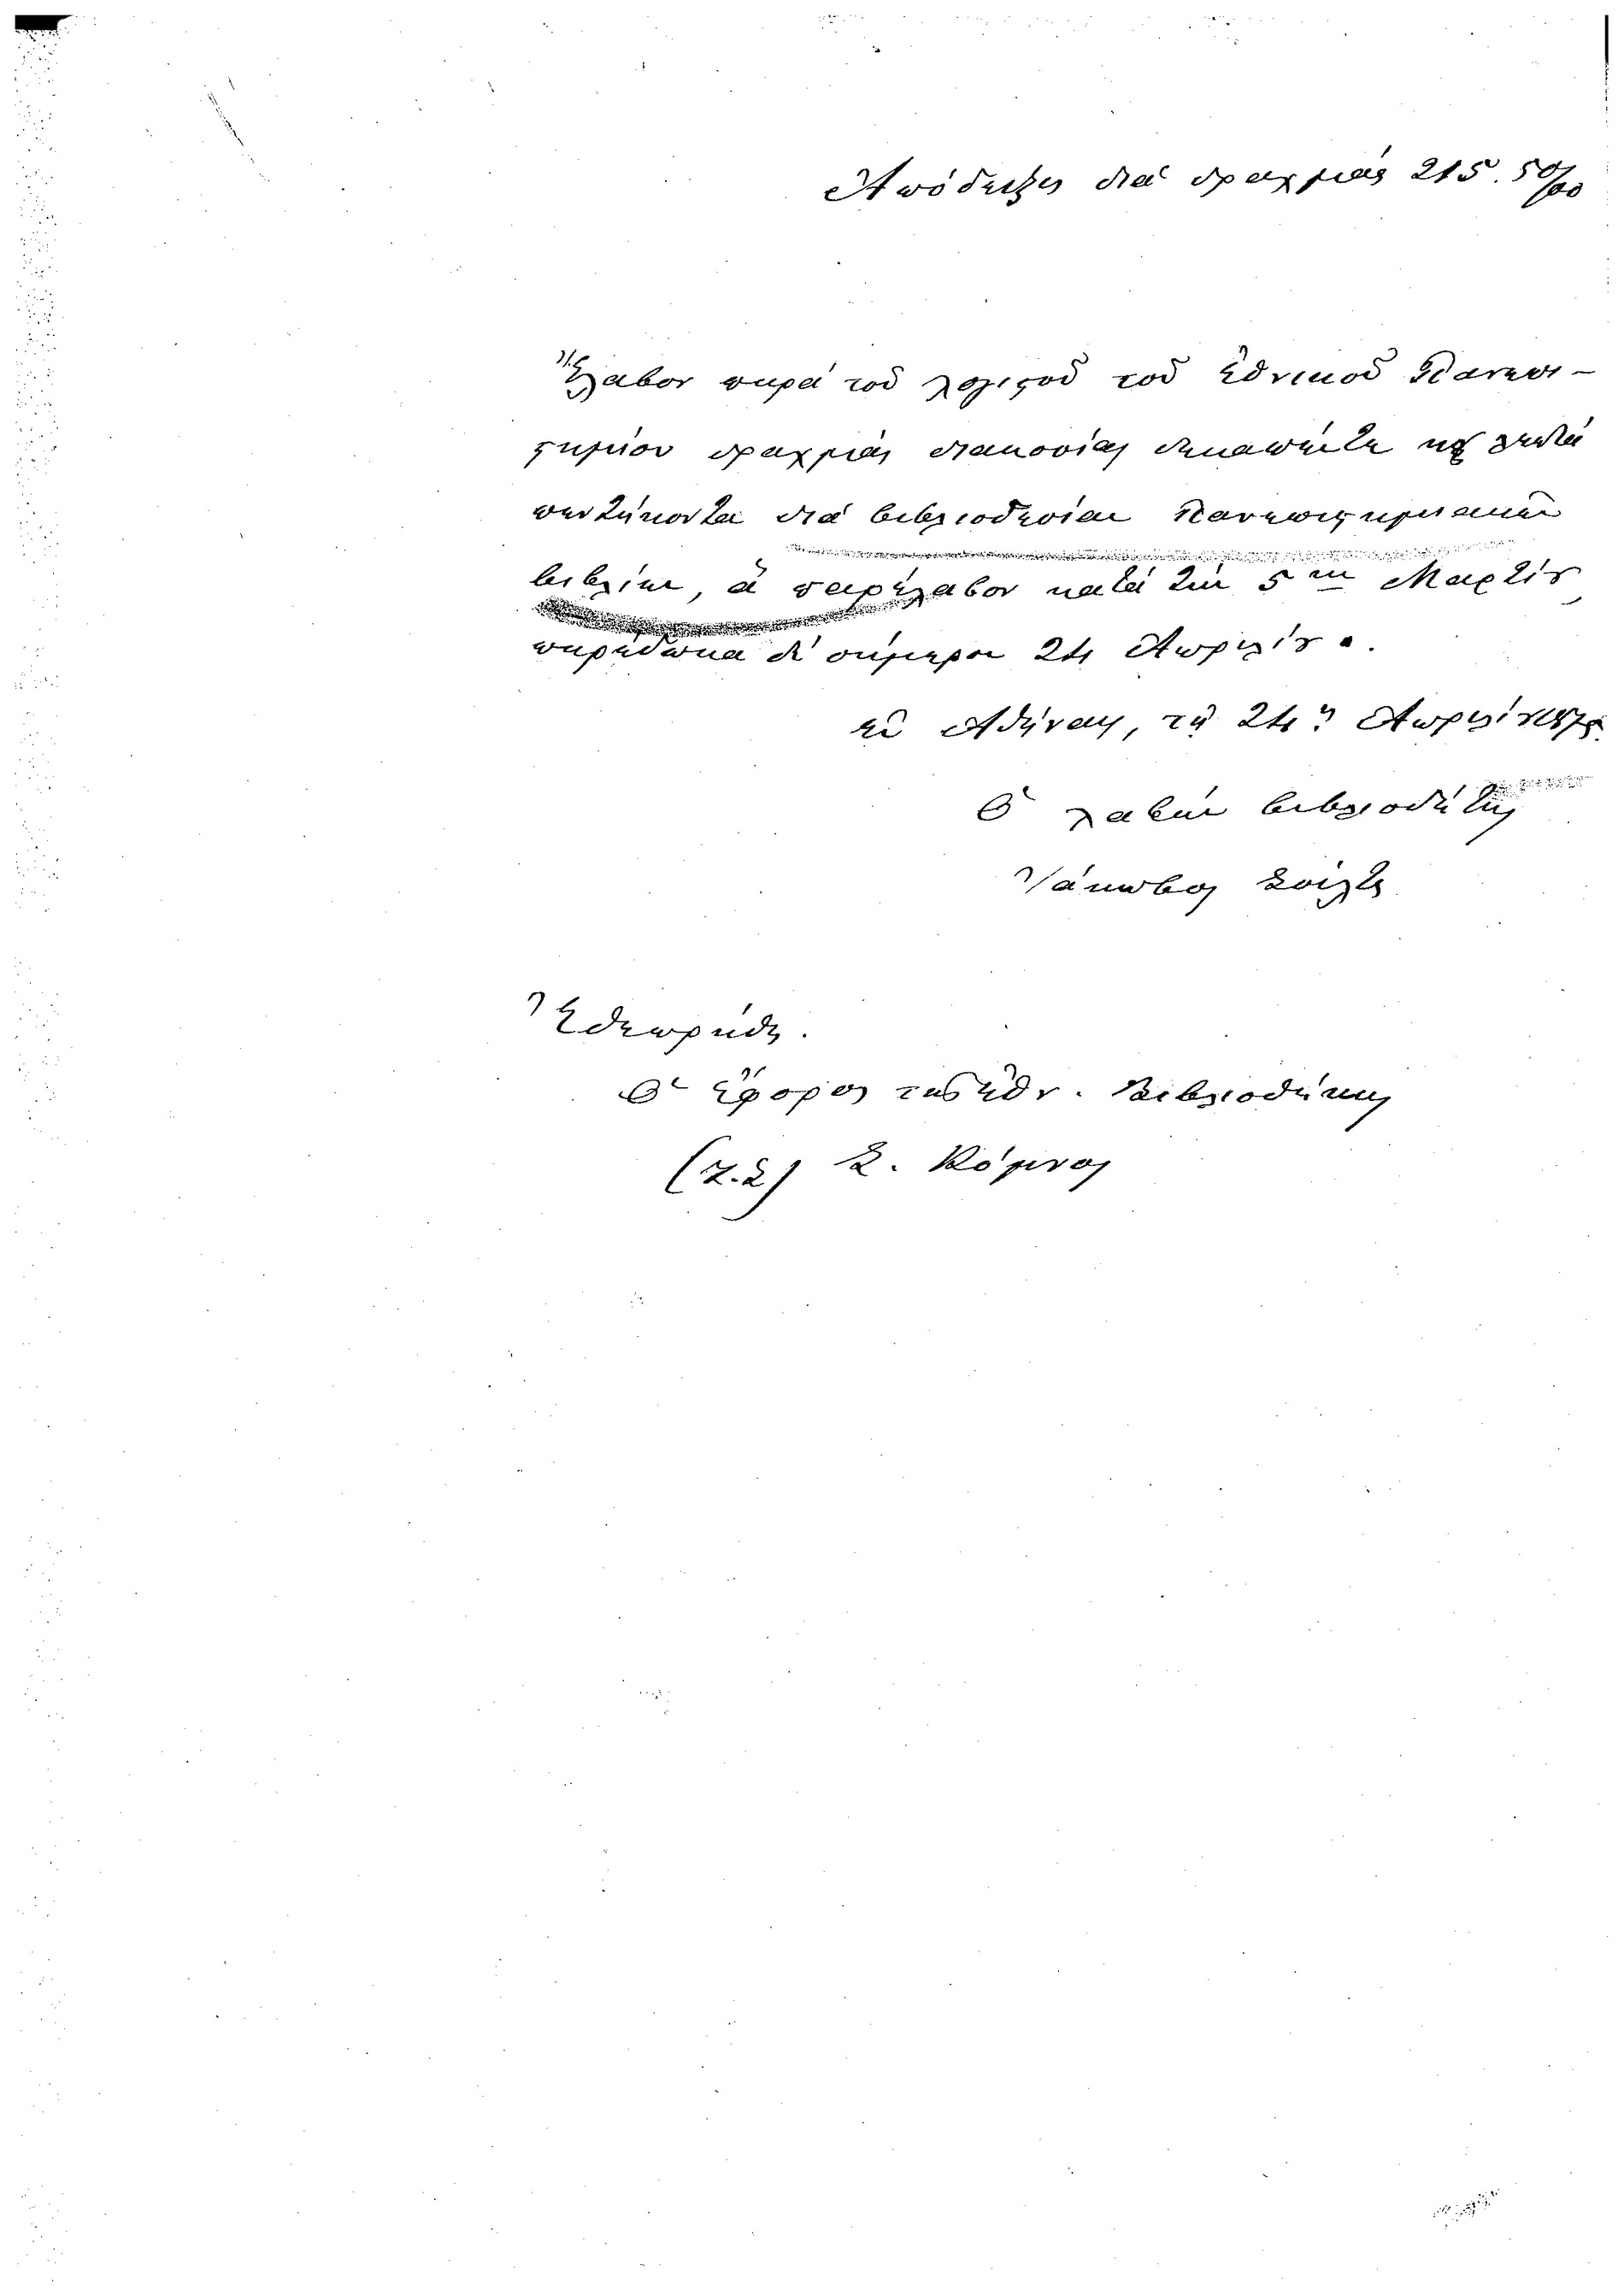 Ἀπόδειξις διὰ δραχμὰς 215. 50/00
Ἔλαβον παρὰ τοῦ λογιστοῦ τοῦ Ἐθνικοῦ Πανεπι-
στημίου δραχμὰς διακοσίας δεκαπέντε καὶ λεπτὰ
πεντήκοντα διὰ βιβλιοδεσίαν Πανεπιστημιακῶν
βιβλίων, ἃ παρέλαβον κατὰ τὴν 5ην Μαρτίου
παρέδωκα δὲ σήμερον 24 Ἀπριλίου.
ἐν Ἀθήναις, τῇ 24ῃ Ἀπριλίου
Ὁ λαβὼν βιβλιοδέτης
Ἰάκωβος
Ἐθεωρήθη.
Ὁ Ἔφορος τῆς Ἐθν. Βιβλιοθήκης
(Τ.Σ) Σ. Κόμνος